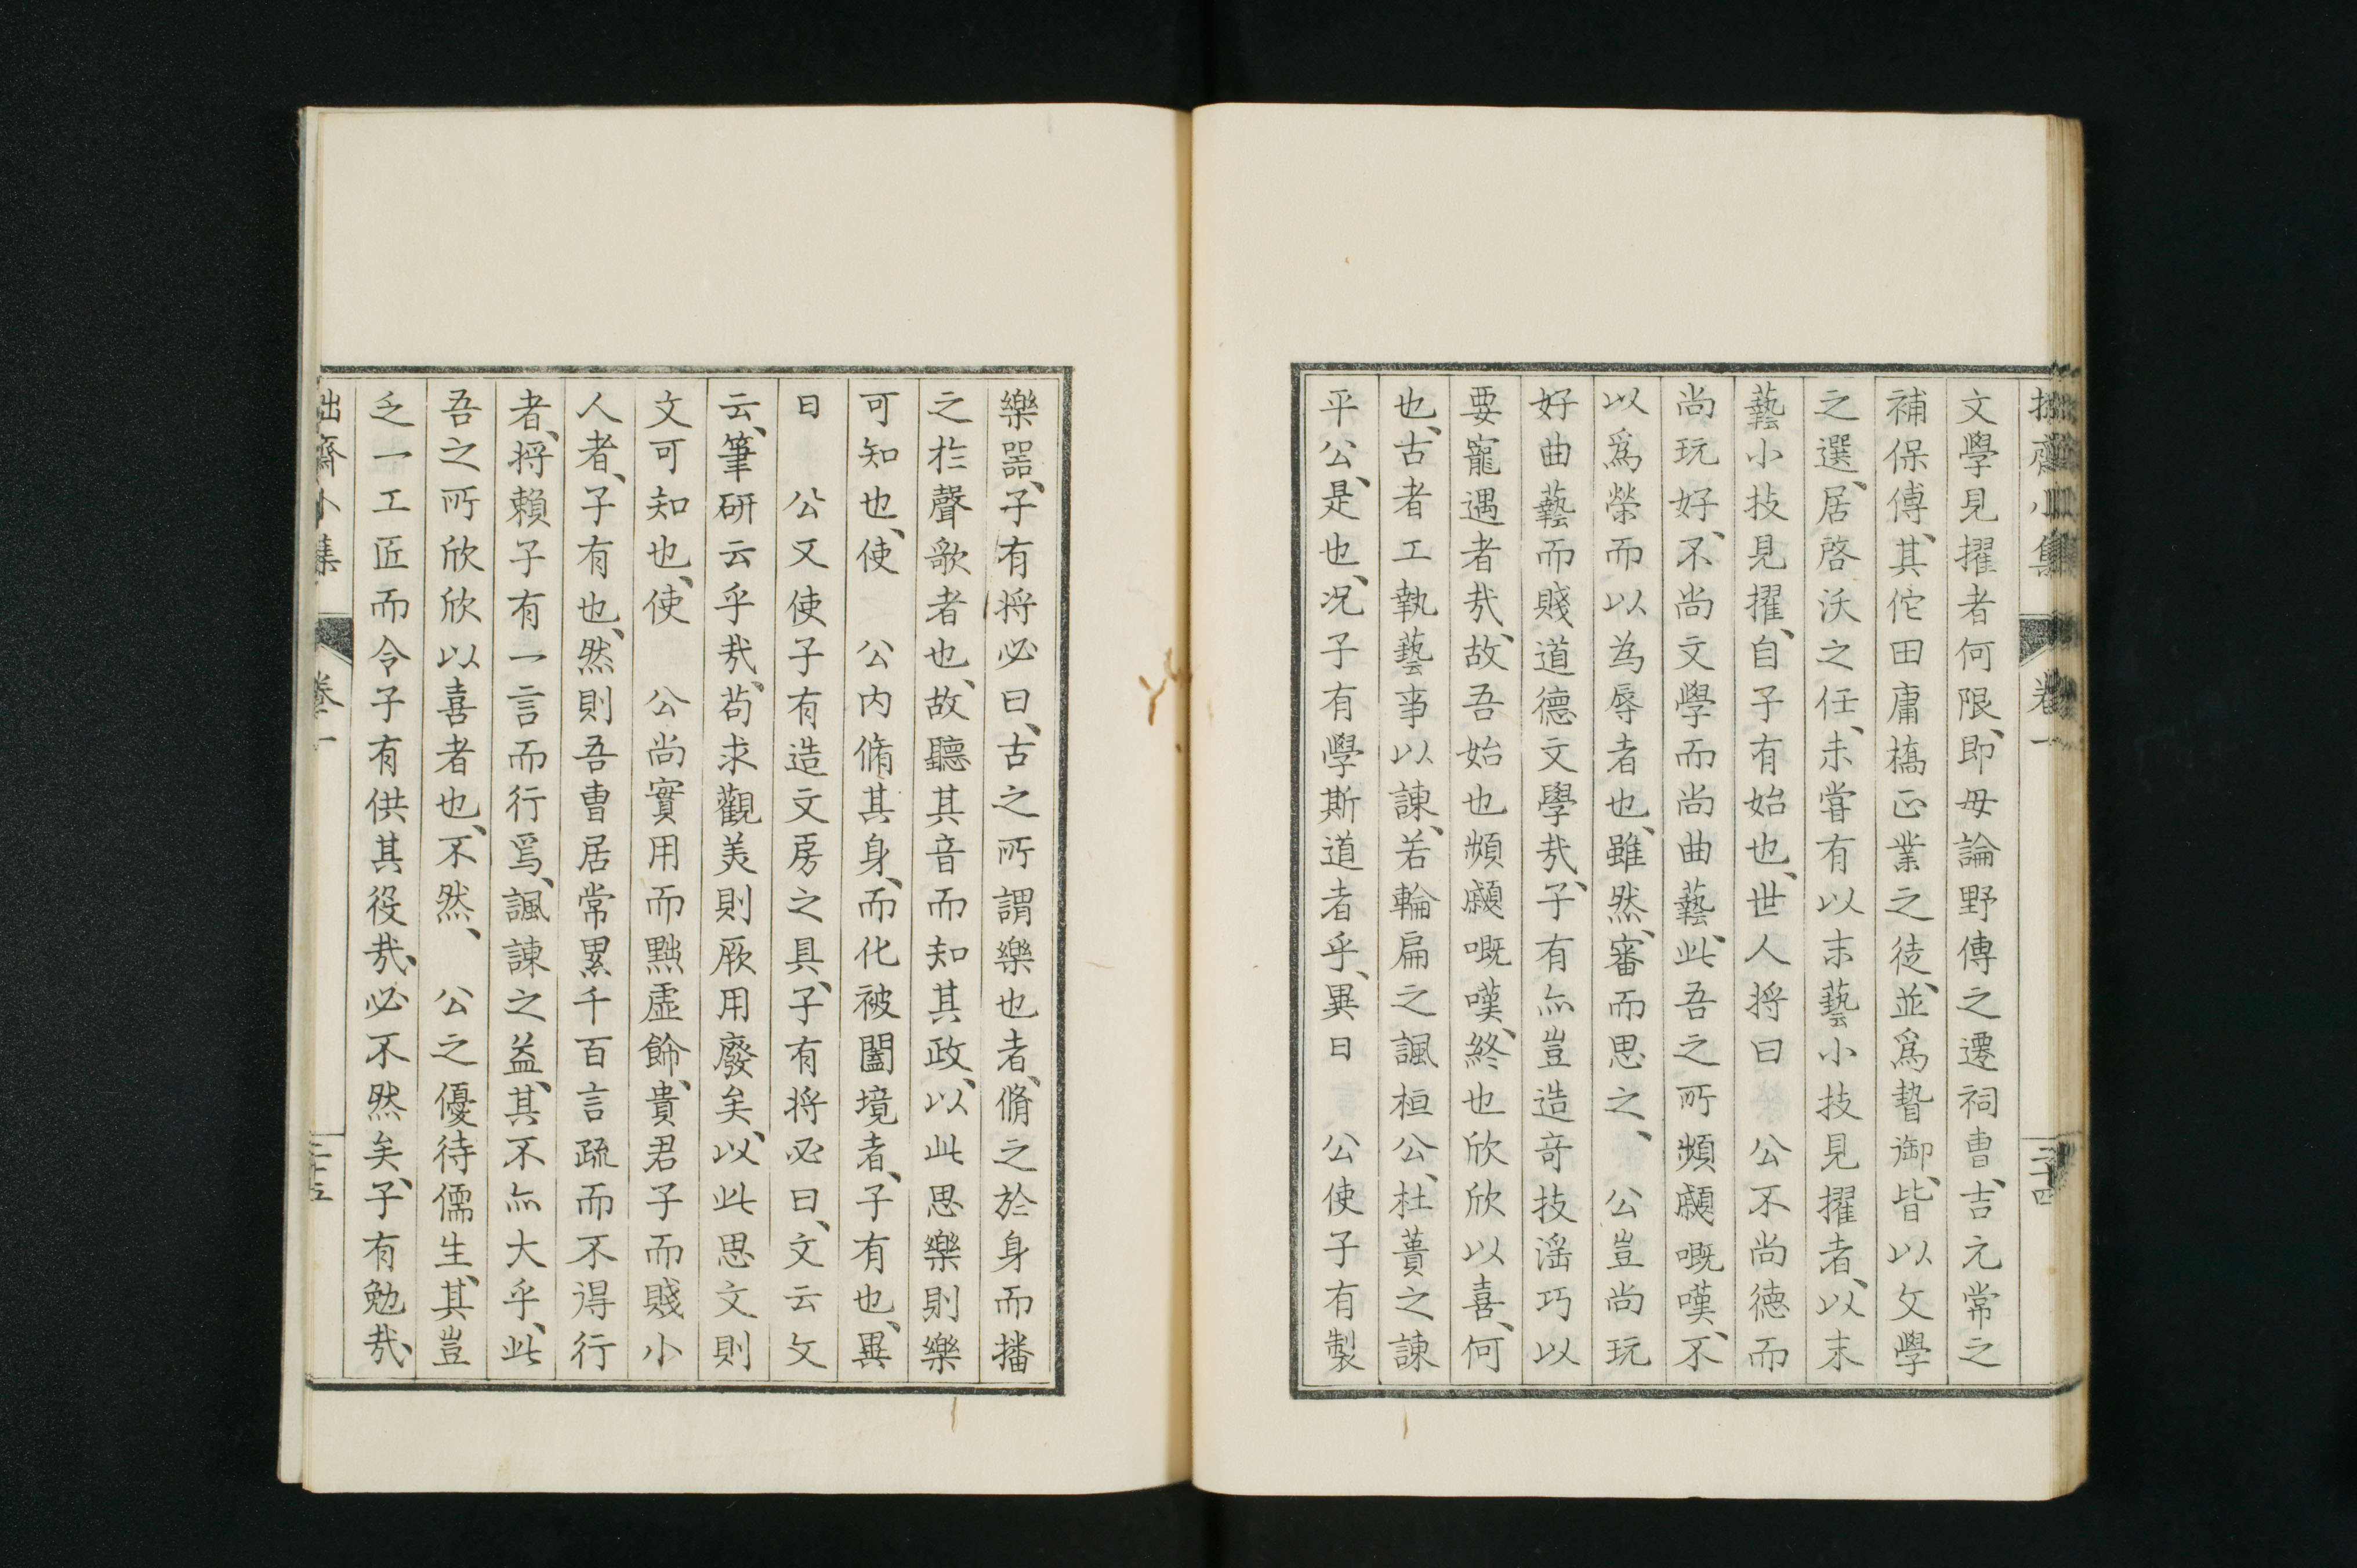 拙齋小集 卷一 二十四
文學見擢者何限、即毋論野傳之遷祠曹、吉元常之
補保傅、其佗田庸橋正業之徒、並爲暬御、皆以文學
之選、居啓沃之任、未嘗有以末藝小技見擢者、以末
藝小技見擢、自子有始也、世人将曰　公不尚德而
尚玩好、不尚文學而尚曲藝、此吾之所頻顣嘅嘆、不
以爲榮而以為辱者也、雖然、審而思之、　公豈尚玩
好曲藝而賤道德文學㢤、子有亦豈造竒技滛巧以
要寵遇者㢤、故吾始也頻顣嘅嘆、終也欣欣以喜、何
也、古者工執藝事以諫、若輪扁之諷桓公、杜蕢之諫
平公、是也、况子有學斯道者乎、異日　公使子有製
樂噐、子有将必曰、古之所謂樂也者、脩之於身而播
之於聲歌者也、故聽其音而知其政、以此思樂則樂
可知也、使　公内脩其身、而化被闔境者、子有也、異
日　公又使子有造文房之具、子有将必曰、文云文
云、筆研云乎㢤、苟求觀美則厥用廢矣、以此思文則
文可知也、使　公尚實用而黜虛飾、貴君子而賤小
人者、子有也、然則吾曹居常累千百言疏而不得行
者、将賴子有一言而行焉、諷諫之益、其不亦大乎、此
吾之所欣欣以喜者也、不然、　公之優待儒生、其豈
乏一工匠而令子有供其役㢤、必不然矣、子有勉㢤、
拙齋小集 卷一 二十五